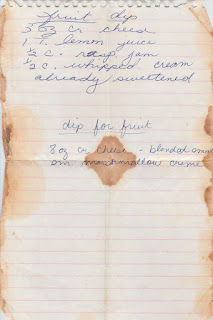 fruit dip
3 oz cr. cheese
1 T. lemon juice
½ c. rasp jam
½ c. whipped cream
already sweetened
dip for fruit
8 oz cr cheese - blended
marshmallow creme